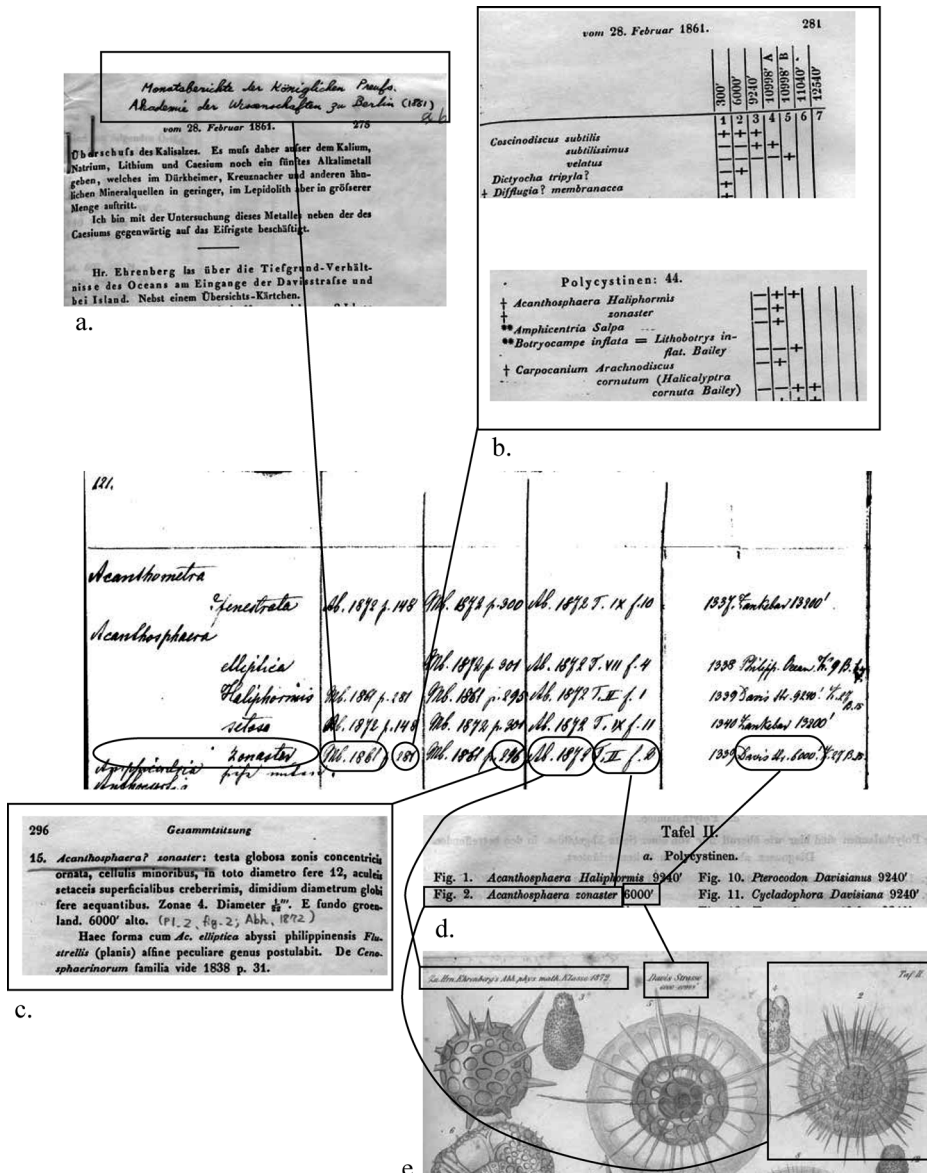 Monatsberichte der Königlichen Preufs.
Akademie der Wissenschaften zu Berlin (1861)
vom 28. Februar 1861. 275
Überschufs des Kalisalzes. Es mufs daher aufser dem Kalium,
Natrium, Lithium und Caesium noch ein fünftes Alkalimetall
geben, welches im Dürkheimer, Kreuznacher und anderen ähn-
lichen Mineralquellen in geringer, im Lepidolith aber in gröfserer
Menge auftritt.
Ich bin mit der Untersuchung dieses Metalles neben der des
Caesiums gegenwärtig auf das Eifrigste beschäftigt.
Hr. Ehrenberg las über die Tiefgrund-Verhält-
nisse des Oceans am Eingange der Davisstrafse und
bei Island. Nebst einem Übersichts-Kärtchen.
a.
vom 28. Februar 1861. 281
300' 6000' 9240' 10998' A 10998' B 11040' 12540'
1 2 3 4 5 6 7
Coscinodiscus subtilis — + +
subtilissimus — — + +
velatus — — — — +
Dictyocha tripyla? — +
† Difflugia? membranacea +
Polycystinen: 44.
† Acanthosphaera Haliphormis — + +
† zonaster — +
**Amphicentria Salpa — +
**Botryocampe inflata = Lithobotrys in-
flat. Bailey — — +
† Carpocanium Arachnodiscus — +
cornutum (Halicalyptra
cornuta Bailey) — — + +
b.
121.
Acanthometra
?fenestrata Ab. 1872 p. 148 Mb. 1872 p. 300 Ab. 1872 T. IX f. 10 1337. Zankebar 13200'
Acanthosphaera
elliptica Mb. 1872 p. 301 Ab. 1872 T. VII f. 4 1338 Philipp. Ocean.
Haliphormis Mb. 1861 p. 281 Mb. 1861 p. 295 Ab. 1872 T. II f. 1 1339 Davis Str. 9240'
setosa Ab. 1872 p. 148 Mb. 1872 p. 301 Ab. 1872 T. IX f. 11 1340 Zankebar 13200'
zonaster Mb. 1861 p. 281 Mb. 1861 p. 296 Ab. 1872 T. II f. 2 1339 Davis Str. 6000'
296 Gesammtsitzung
15. Acanthosphaera? zonaster: testa globosa zonis concentricis
ornata, cellulis minoribus, in toto diametro fere 12, aculeis
setaceis superficialibus creberrimis, dimidium diametrum globi
fere aequantibus. Zonae 4. Diameter E fundo groen-
land. 6000' alto. (Pl. 2, fig. 2; Abh. 1872)
Haec forma cum Ac. elliptica abyssi philippinensis Flu-
strellis (planis) affine peculiare genus postulabit. De Ceno-
sphaerinorum familia vide 1838 p. 31.
c.
Tafel II.
a. Polycystinen.
Fig. 1. Acanthosphaera Haliphormis 9240' Fig. 10. Pterocodon Davisianus 9240'
Fig. 2. Acanthosphaera zonaster 6000' Fig. 11. Cycladophora Davisiana 9240'
d.
Zu Hrn. Ehrenberg's Abh. phys. math. Klasse 1872. Davis Strasse Taf. II
1 3 5 4 2
6
e.